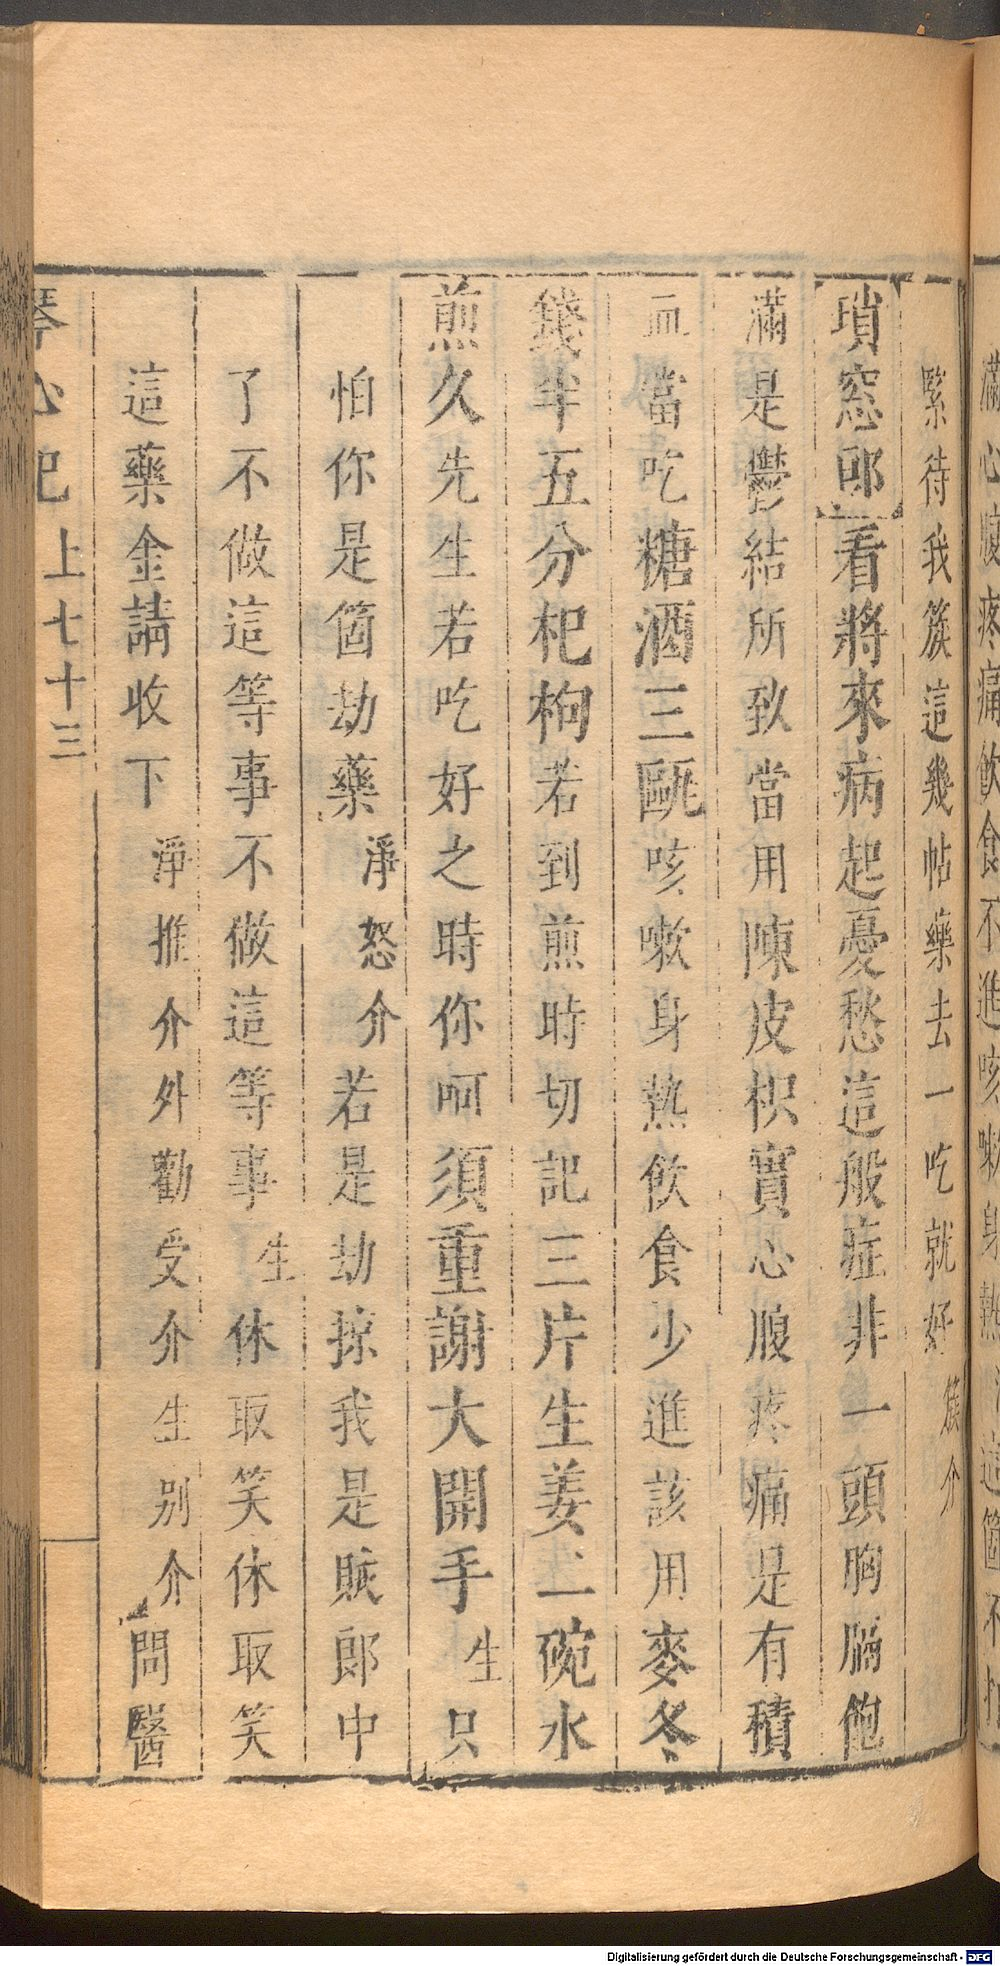 滿心腹疼痛飲食不進咳嗽身熱
緊待我簇這幾帖藥去一吃就好簇介
瑣窓郎看將來病起憂愁這般症非一頭胸膈飽
滿是鬱結所致當用陳皮枳實心腹疼痛是有積
血當吃糖酒三甌咳嗽身熱飲食少進該用麥冬
錢半五分杞枸若到煎時切記三片生姜一碗水
煎久先生若吃好之時你呵須重謝大開手生只
怕你是箇劫藥淨怒介若是劫掠我是賊郎中
了不做這等事不做這等事生休取笑休取笑
這藥金請收下淨推介外勸受介生別介問醫
琴心記上七十三
Digitalisierung gefördert durch die Deutsche Forschungsgemeinschaft - DFG